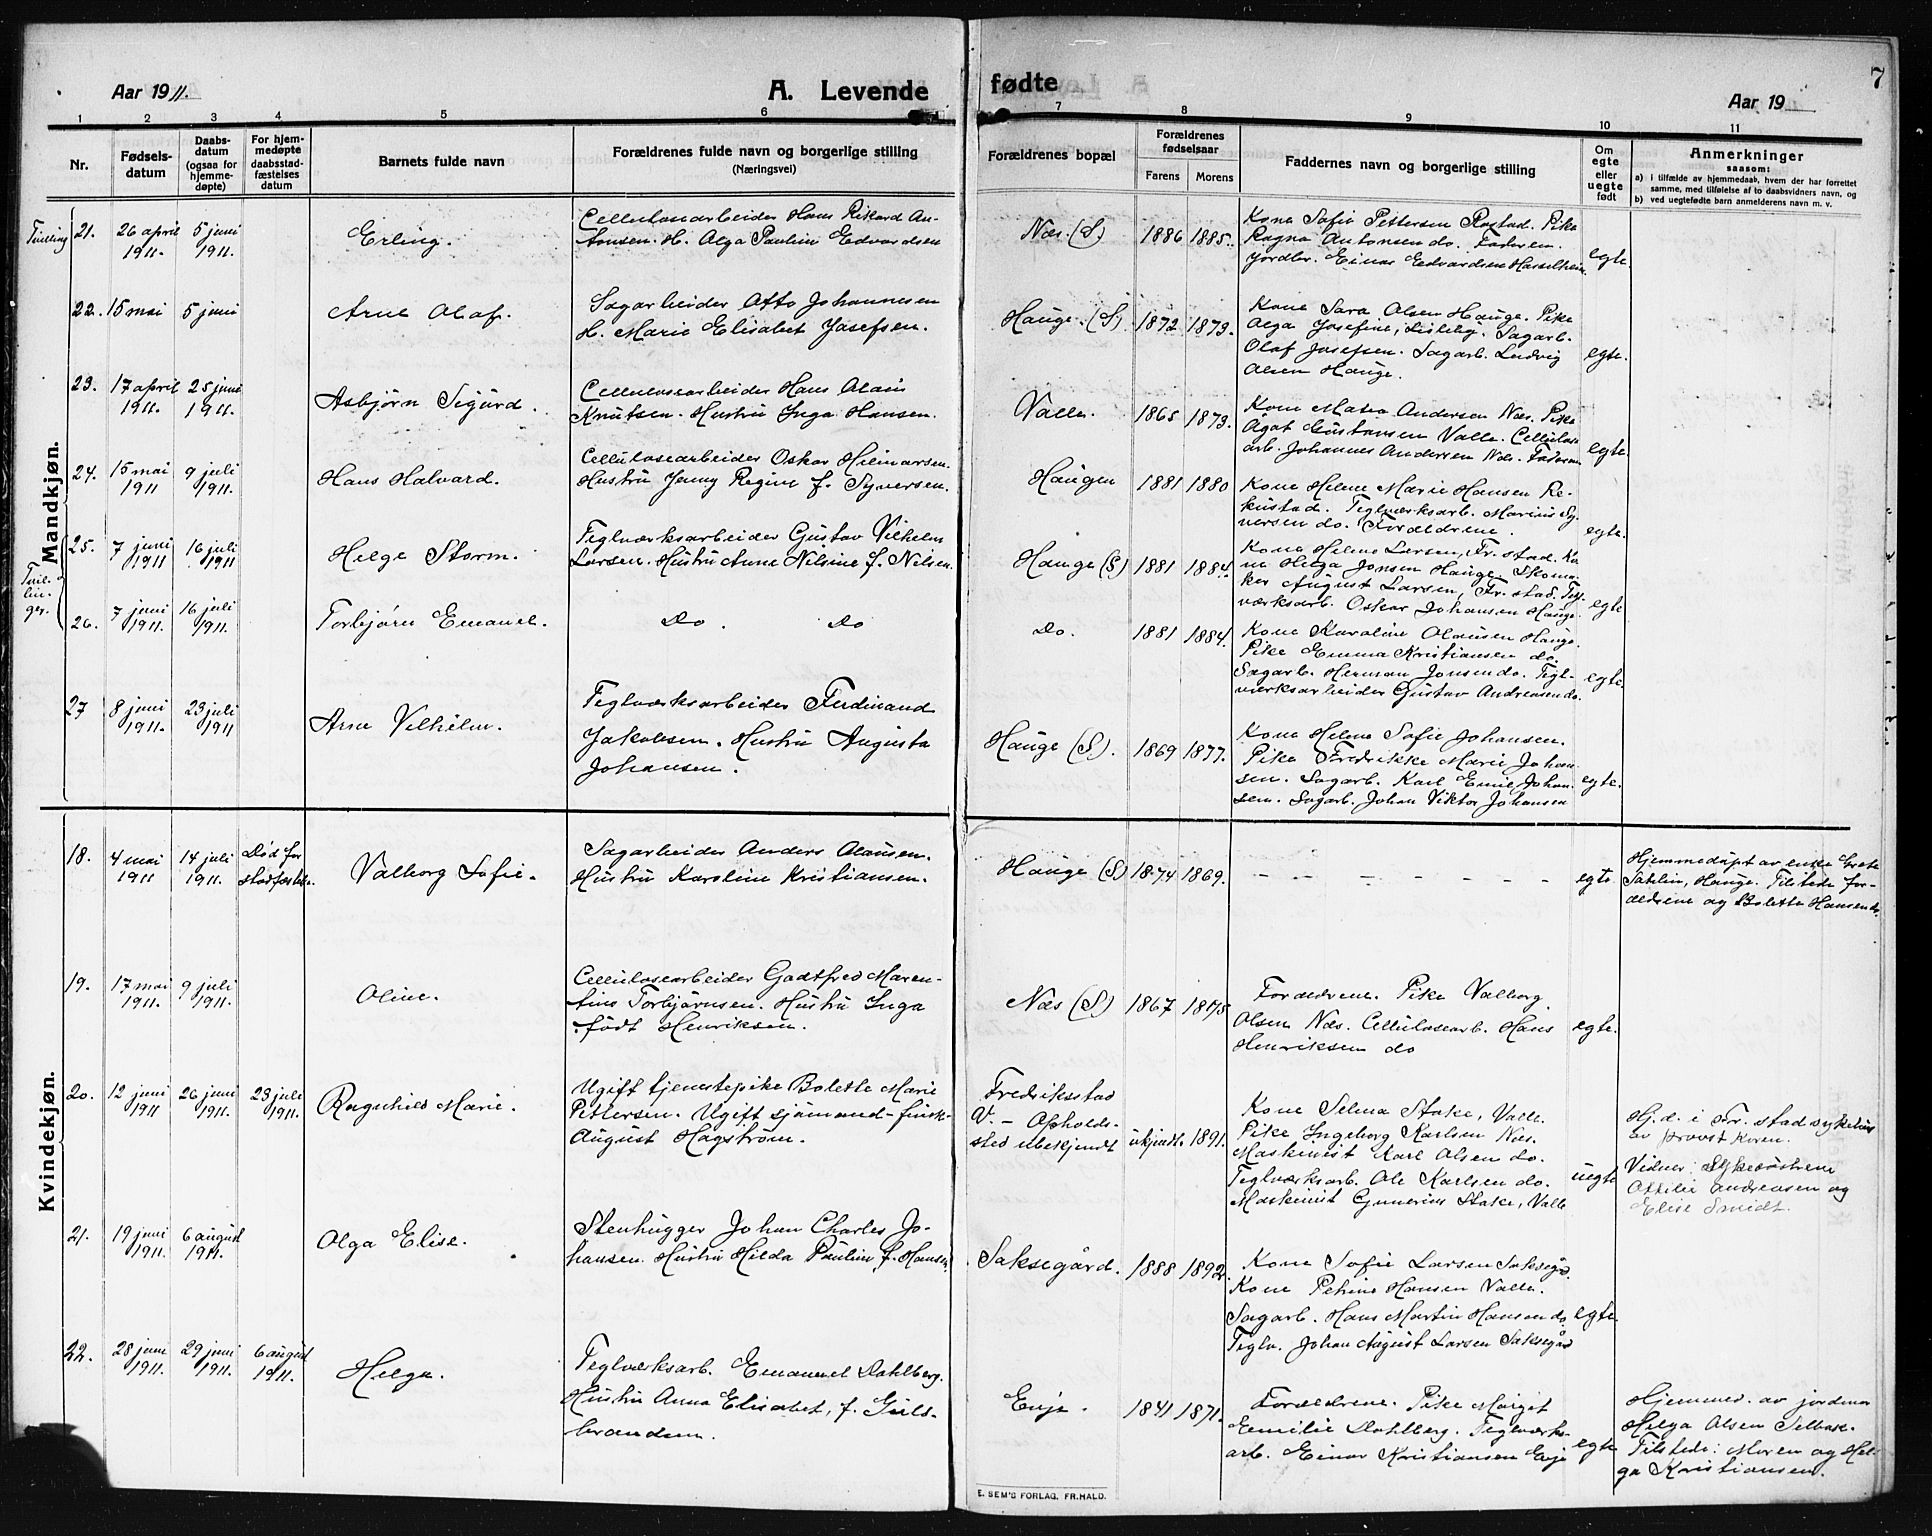 Aar 1911.
A. Levende
1 2 3 4 5 6
Nr.
Fødsels-
datum
Daabs-
datum
(ogsaa for
hjemme-
døpte)
For hjem-
medøpte
daabsstad-
fæstelses
datum
Barnets fulde navn
Forældrenes fulde navn og borgerlige stilling
(Næringsvei)
Mandkjøn.
Tvilling 21. 26 april 1911. 5 juni 1911. Erling. Cellulosearbeider Hans Rikard An-
tonsen. H. Olga Pauline Edvardsen
22. 15 mai 5 juni Arne Olaf. Sagarbeider Otto Johannesen
H. Marie Elisabet Josefsen.
23. 17 april 1911. 25 juni 1911. Asbjørn Sigurd. Cellulosearbeider Hans Olaus
Knutsen. Hustru Inga Hansen.
24. 15 mai 1911 9 juli 1911. Hans Halvard. Cellulosearbeider Oskar Hilmarsen.
Hustru Jenny Regine f. Syversen.
Tvil-
lin-
ger.
25. 7 juni 1911 16 juli 1911 Helge Storm. Teglverksarbeider Gustav Vilhelm
Larsen. Hustru Anne Nilsine f. Nilsen.
26. 7 juni 1911. 16 juli 1911. Torbjørn Emanuel. Do. Do
27 8 juni 1911. 23 juli 1911 Arne Vilhelm. Teglverksarbeider Ferdinand
Jakobsen. Hustru Augusta
Johansen.
Kvindekjøn.
18. 4 mai 1911 14 juli 1911. Død før
stadfæstelse. Valborg Sofie. Sagarbeider Anders Olausen.
Hustru Karoline Kristiansen.
19. 17 mai 1911. 9 juli 1911. Oline. Cellulosearbeider Godtfred Maren-
tius Torbjørnsen. Hustru Inga
født Henriksen.
20. 12 juni 1911 26 juni 1911. 23 juli 1911. Ragnhild Marie. Ugift tjenestepike Bolette Marie
Pettersen. Ugift sjømand-finsk-
August Hagstrøm.
21. 19 juni 1911. 6 august 1911. Olga Elise. Stenhugger Johan Charles Jo-
hansen. Hustru Hilda Pauline f. Hansen
22. 28 juni 1911. 29 juni 1911. 6 august 1911. Helga. Teglverksarb. Emanuel Dahlberg.
Hustru Anna Elisabet, f. Guls-
brandsen.
fødte
7
Aar 19
7 8 9 10 11
Forældrenes bopæl
Forældrenes
fødselsaar
Farens Morens
Faddernes navn og borgerlige stilling
Om
egte
eller
uegte
født
Anmerkninger
saasom:
a) i tilfælde av hjemmedaab, hvem der har forrettet
samme, med tilføielse af to daabsvidners navn, og
b) ved uegtefødte barn anmelderens navn m. v.
Næs (S) 1886 1885. Kone Sofie Pettersen Rostad. Pike
Ragna Antonsen do. Faderen.
Jordbr. Einar Edvardsen Hasselheim egte.
Hauge. (S) 1872 1873. Kone Sara Olsen Hauge. Pike
Olga Josefine, Lisleby. Sagarb.
Olaf Josefsen. Sagarb. Ludvig
Olsen Hauge. egte.
Valle. 1865 1873. Kone Matea Andersen Næs. Pike
Agot Gustavsen Valle. Cellulose
arb. Johannes Andersen Næs. Faderen egte.
Haugen 1881 1880 Kone Helene Marie Hansen Re-
kustad. Teglverksarb. Marius Sy-
versen do. Forældrene. egte.
Hauge (S) 1881 1884. Kone Helene Larsen, Fr.stad. Ko-
ne Helga Jonsen Hauge. Skoma-
ker August Larsen, Fr.stad. Tegl-
verksarb. Oskar Johansen Hauge. egte
Do. 1881 1884. Kone Karoline Olausen Hauge.
Pike Emma Kristiansen do.
Sagarb. Herman Jonsen do. Tegl-
verksarbeider Gustav Andreasen do. egte.
Hauge (S). 1869 1877. Kone Helene Sofie Johansen.
Pike Fredrikke Marie Johan-
sen. Sagarb. Karl Emil Johan-
sen. Sagarb. Johan Viktor Johansen egte.
Hauge (S) 1874 1869. - - - - - - - egte. Hjemmedøpt av enke Grete
Hauge. Tilstede for-
ældrene og Bolette Hansen do.
Næs (S) 1867 1875 Forældrene. Pike Valborg
Olsen Næs. Cellulosearb. Hans
Henriksen do egte.
Fredriksstad
V. - Opholds-
sted ubekjendt ukjendt. 1891. Kone Selma Stake, Valle.
Pike Ingeborg Karlsen Næs.
Maskinist Karl Olsen do.
Teglverksarb. Ole Karlsen do.
Maskinist Gunerius Stake, Valle uegte Hj.d. i Fr.stad sykehus
av provst Koren.
Vidner: Sykesøstrene
Ottilie Andreasen og
Elise Smidt.
Saksegård. 1888 1892. Kone Sofie Larsen Saksegd.
Kone Petrine Hansen Valle.
Sagarb. Hans Martin Hansen do.
Teglv. Johan August Larsen Saksegård egte.
Enje. 1841 1871. Forældrene. Pike Margit
Emilie Dahlberg. Teglverks-
arb. Einar Kristiansen Enje egte Hjemmed. av jordmor
Helga Olsen Selbak.
Tilstede: Moren og Hel-
ga Kristiansen.
E. SEM'S FORLAG, FR.HALD.